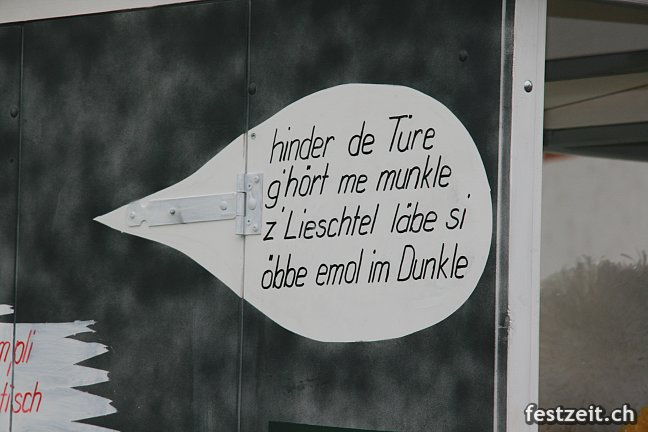 hinder de Türe
g'hört me munkle
z'Lieschtel läbe si
öbbe emol im Dunkle
mpli
tisch
festzeit.ch